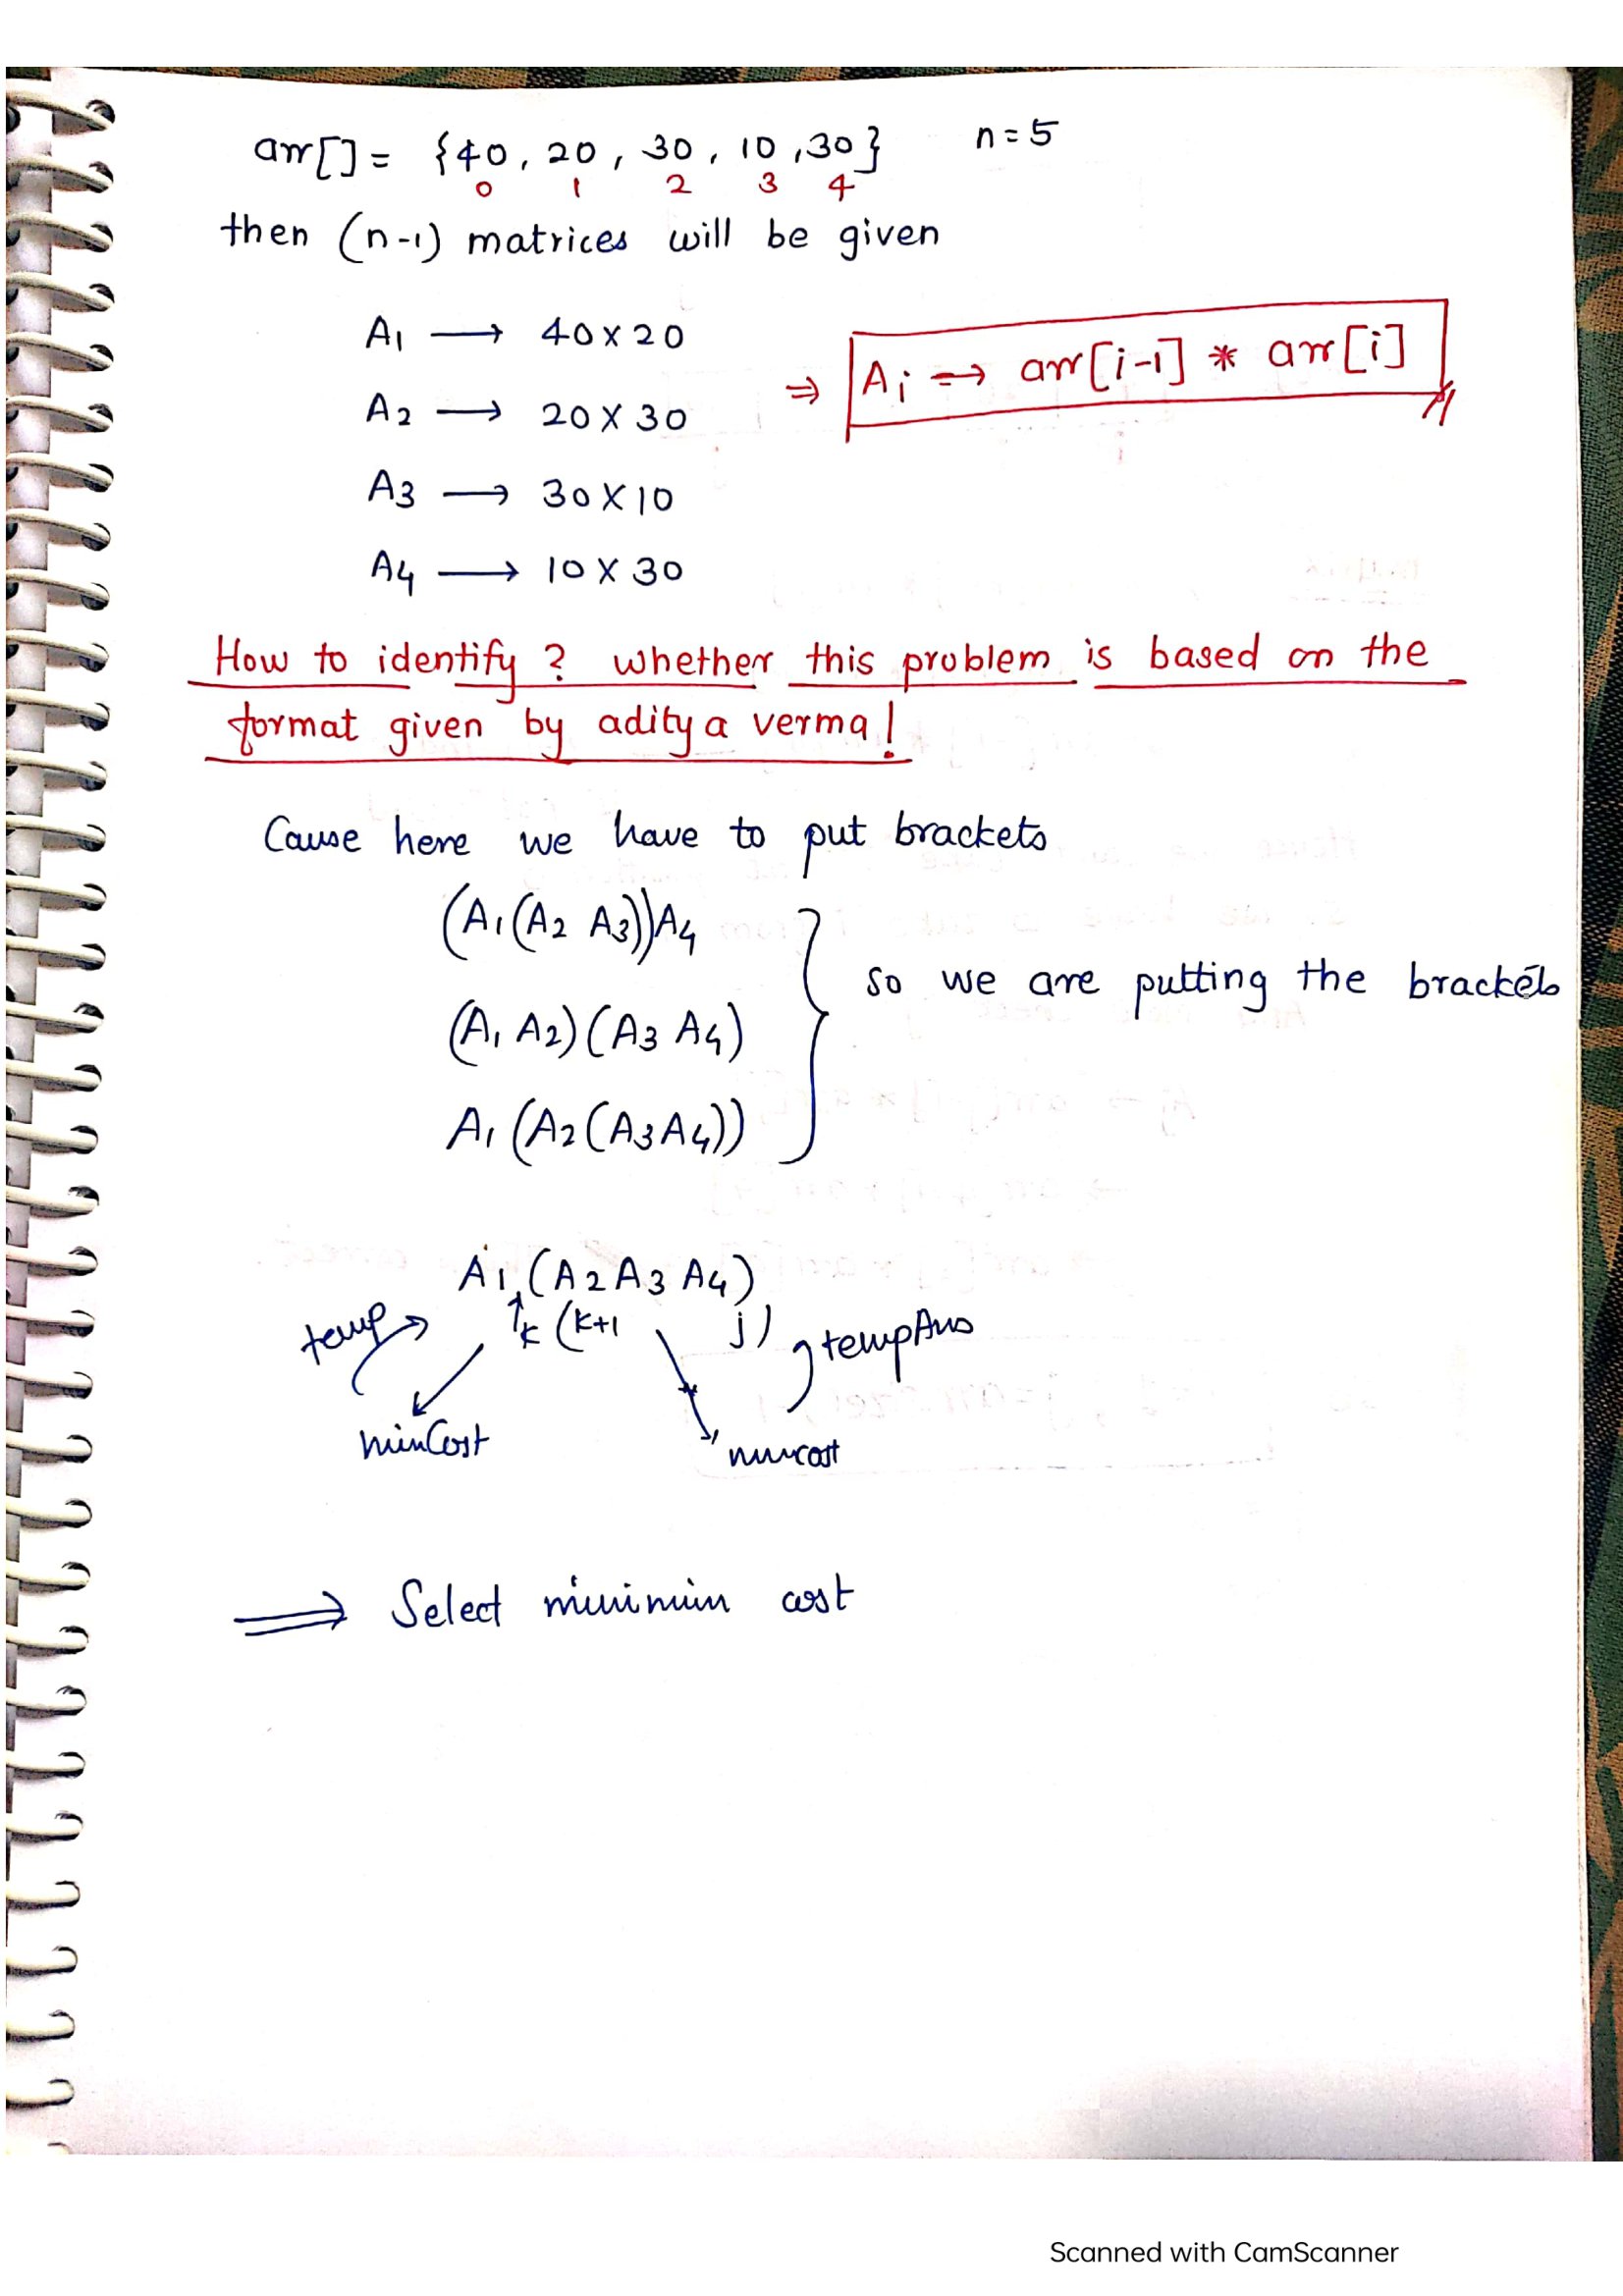 arr[] = {40, 20, 30, 10, 30} n = 5
0 1 2 3 4
then (n-1) matrices will be given
A1 → 40 x 20
A2 → 20 x 30
⇒ Ai → arr[i-1] * arr[i]
A3 → 30 x 10
A4 → 10 x 30
How to identify? whether this problem is based on the
format given by aditya verma!
Cause here we have to put brackets
(A1(A2 A3))A4
(A1 A2)(A3 A4)
A1(A2(A3A4))
so we are putting the brackets
A1(A2 A3 A4)
k (k+1 j)
temp
tempAns
minCost
⇒ Select minimum cost
Scanned with CamScanner